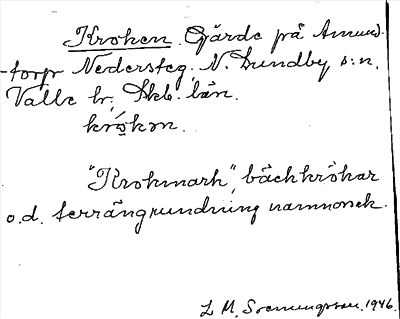 Kroken. Gärde på Amund-
torp Nedersteg. N. Lundby s:n,
Valle hr, Skb. län.
krókơn.
"Krokmark", bäckkrökar
o.d. terrängrundning namnorsak.
L M. Svenungsson. 1946.